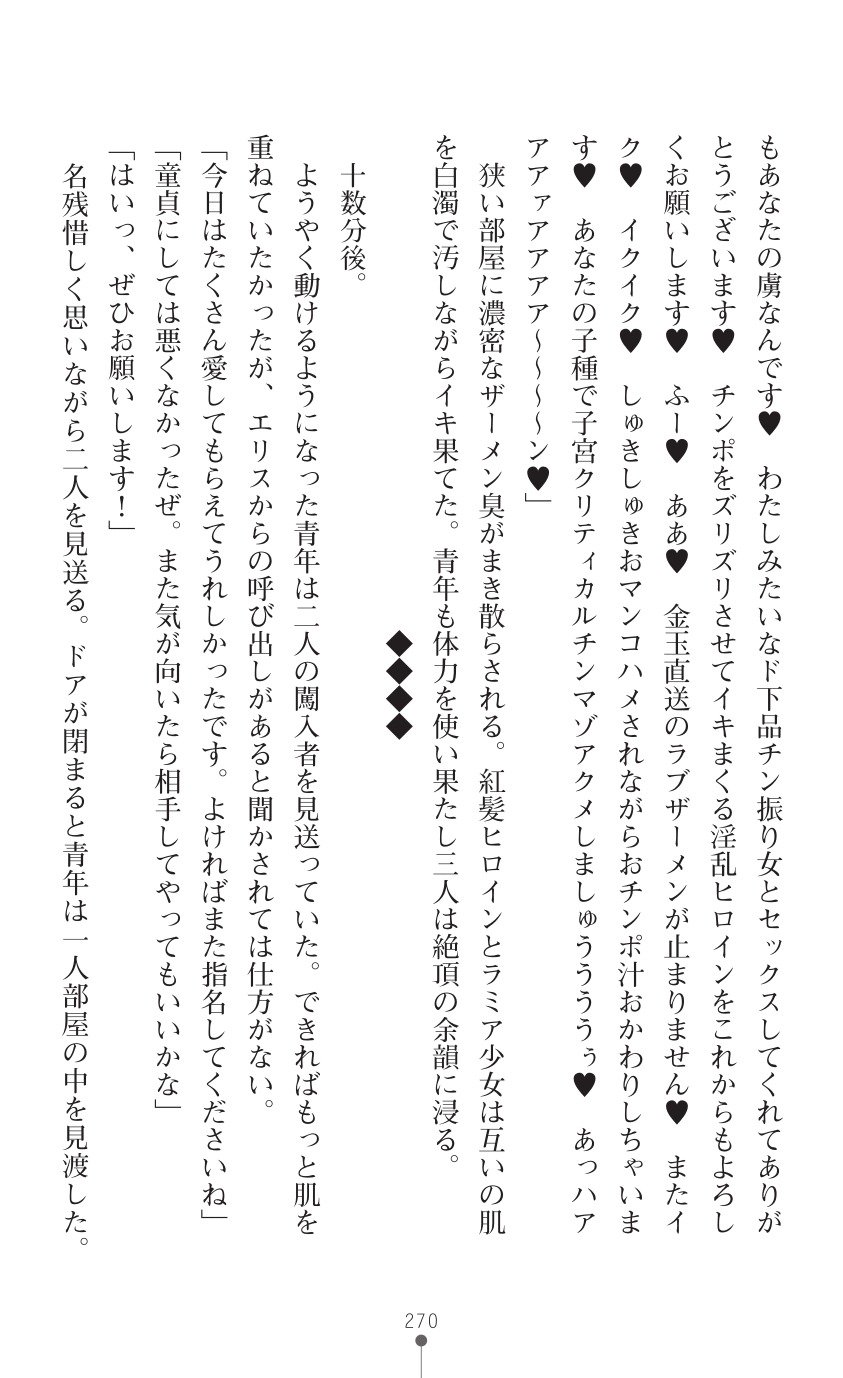 もあなたの虜なんです♥　わたしみたいなド下品チン振り女とセックスしてくれてありが
とうございます♥　チンポをズリズリさせてイキまくる淫乱ヒロインをこれからもよろし
くお願いします♥　ふー♥　ああ♥　金玉直送のラブザーメンが止まりません♥　またイ
ク♥　イクイク♥　しゅきしゅきおマンコハメされながらおチンポ汁おかわりしちゃいま
す♥　あなたの子種で子宮クリティカルチンマゾアクメしましゅうううぅ♥　あっハア
アアァアアアア～～～～ン♥」
　狭い部屋に濃密なザーメン臭がまき散らされる。紅髪ヒロインとラミア少女は互いの肌
を白濁で汚しながらイキ果てた。青年も体力を使い果たし三人は絶頂の余韻に浸る。
◆◆◆◆
　十数分後。
　ようやく動けるようになった青年は二人の闖入者を見送っていた。できればもっと肌を
重ねていたかったが、エリスからの呼び出しがあると聞かされては仕方がない。
「今日はたくさん愛してもらえてうれしかったです。よければまた指名してくださいね」
「童貞にしては悪くなかったぜ。また気が向いたら相手してやってもいいかな」
「はいっ、ぜひお願いします！」
　名残惜しく思いながら二人を見送る。ドアが閉まると青年は一人部屋の中を見渡した。
270